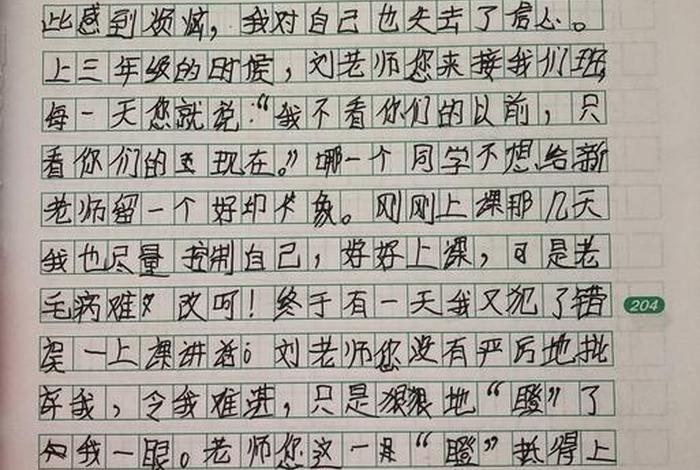 此感到烦恼，我对自己也失去了信心。
上三年级的时候，刘老师您来接我们班，
每一天您就说：“我不看你们的以前，只
看你们的现在。”哪一个同学不想给新
老师留一个好印象。刚刚上课那几天
我也尽量控制自己，好好上课，可是老
毛病难改呵！终于有一天我又犯了错
误一上课讲话。刘老师您没有严厉地批
评我，令我难过，只是狠狠地“瞪”了
我一眼。老师您这一是“瞪”抵得上
204